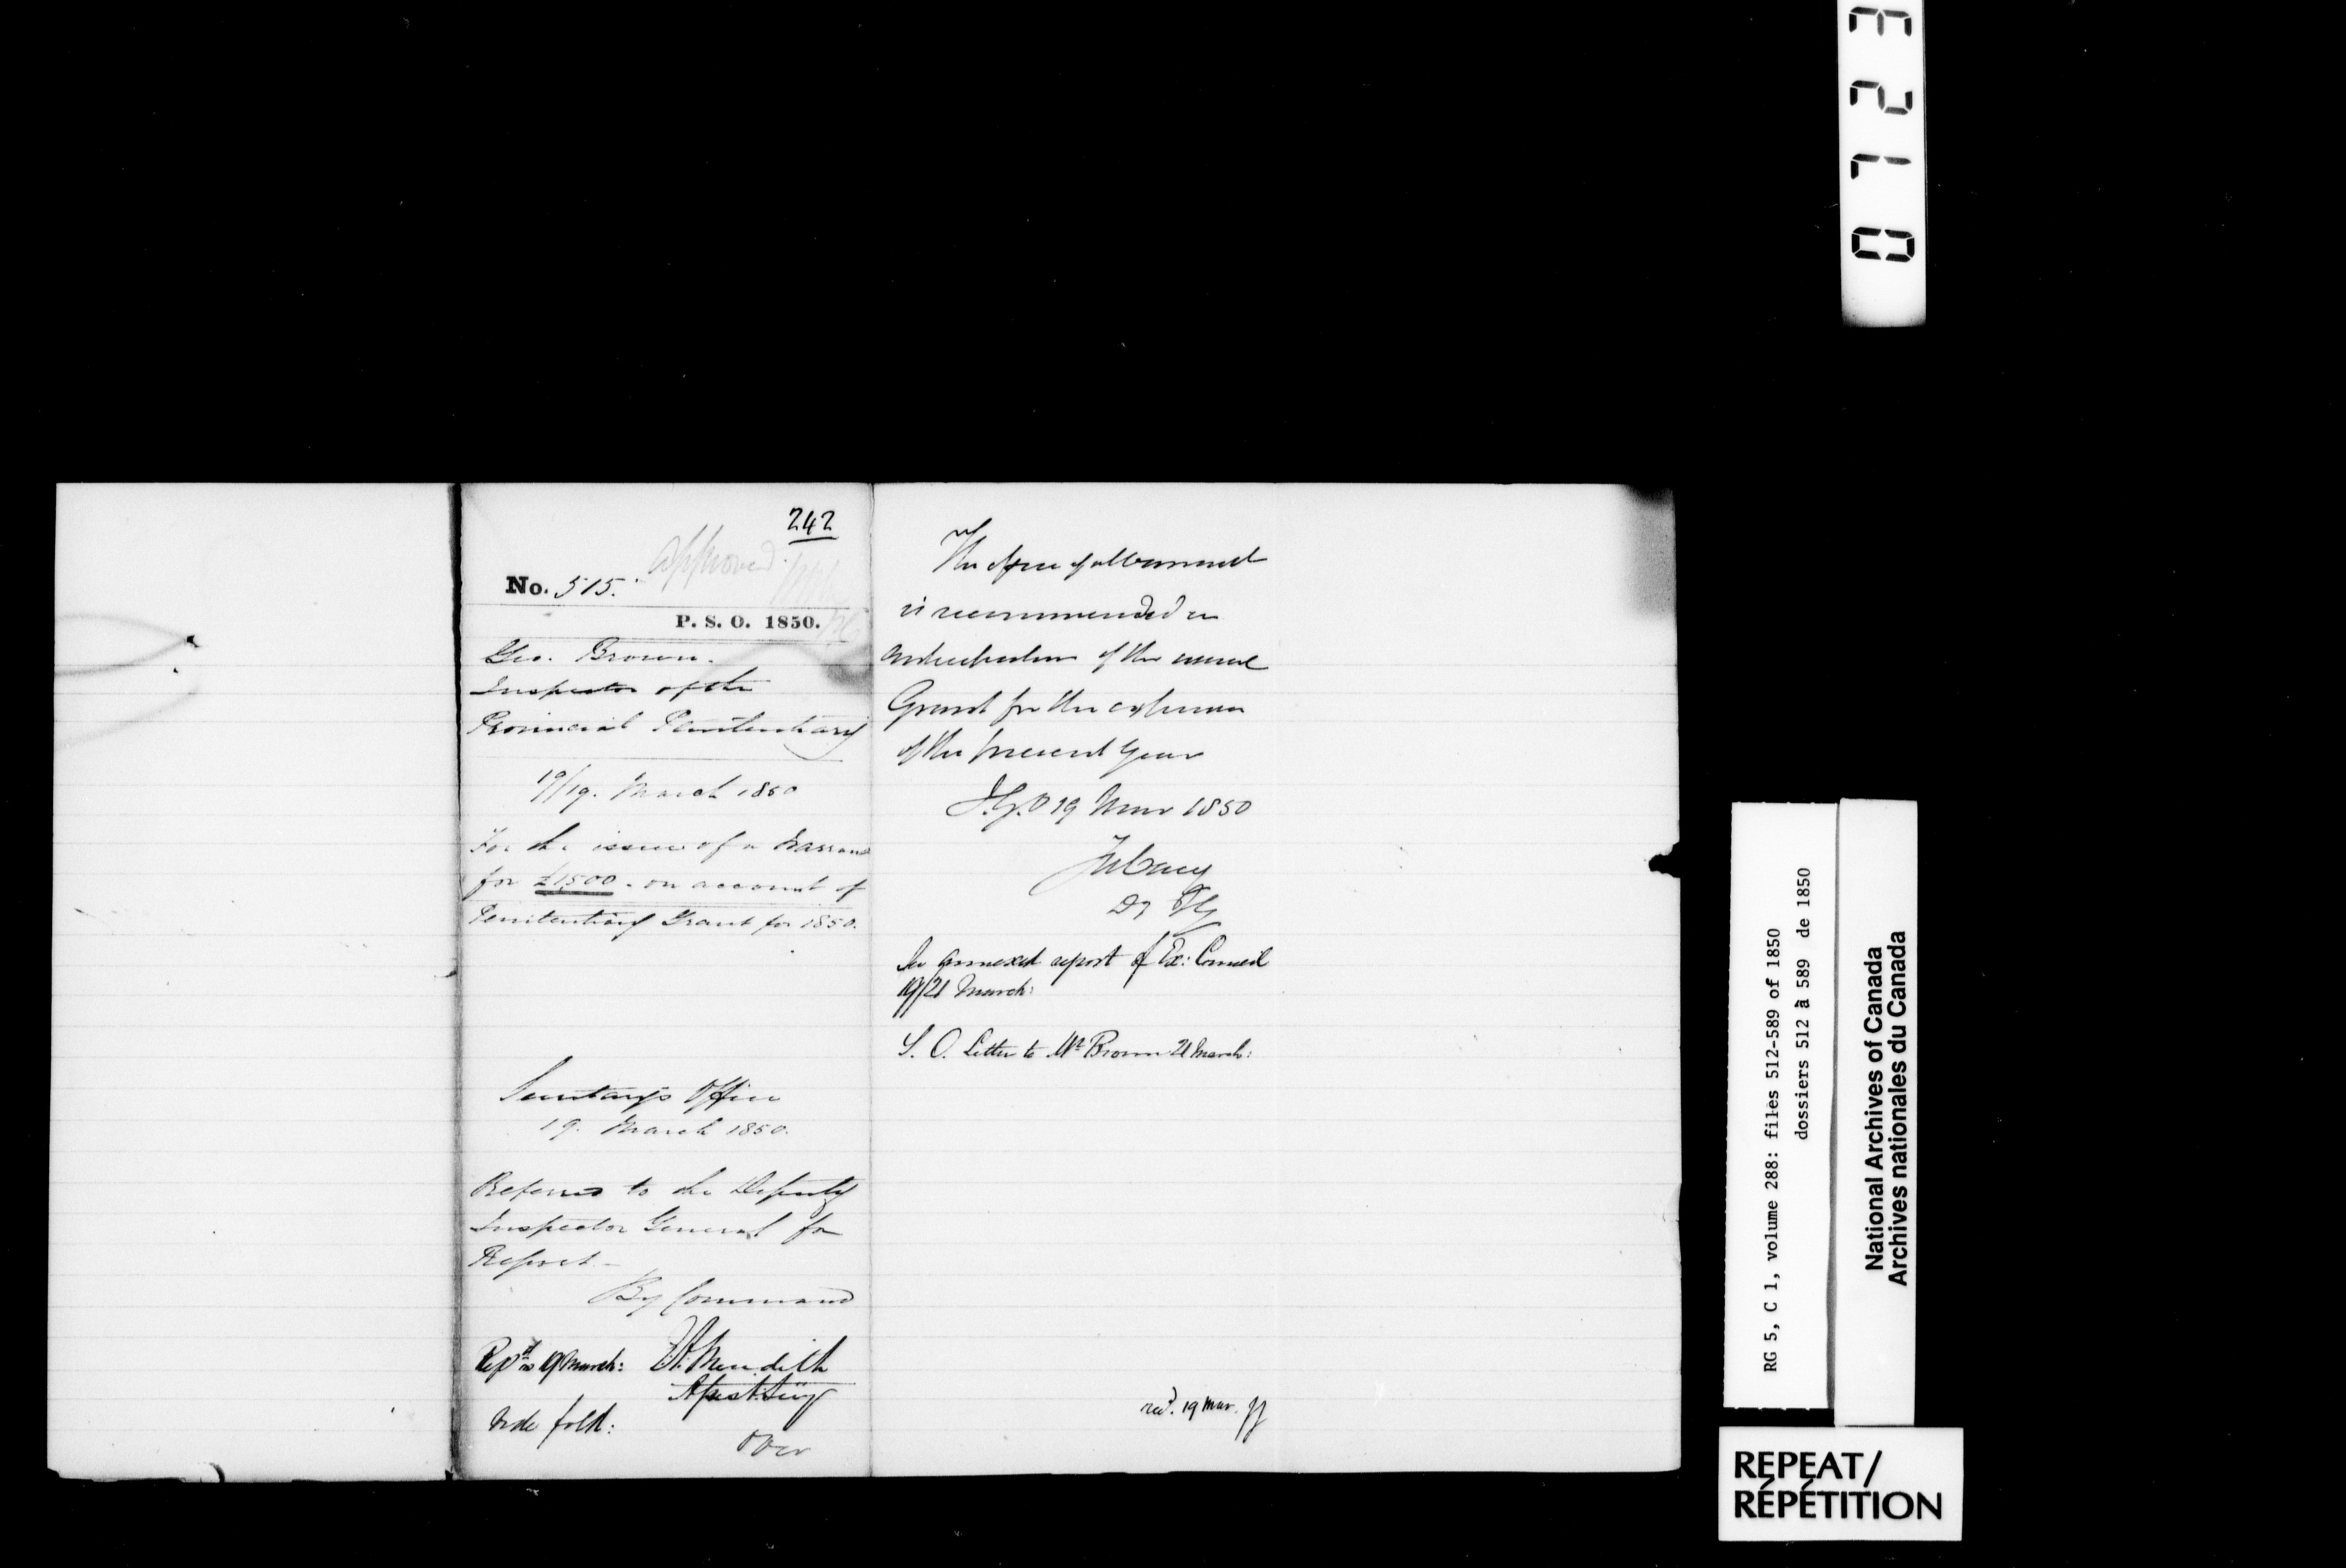 242
approved.
No. 515.
P. S. O. 1850.
Geo. Brown.
Inspector of the
Provincial Penitentiary
19/19. March 1850
For the issue of a Warrant
for £1500 - on account of
Penitentiary Grant for 1850.
Secretary's Office
19. March 1850.
Referred to the Deputy
Inspector General for
Report -
By Command
Repd 19 March: Meredith
Asst. Secy
Vide fold:
Over
The issue of a Warrant
is recommended in
anticipation of the annual
Grant for the expenses
of the present year
I.G.O 19 Mar 1850
Jos Cary
Dy IG
See annexed report of Ex: Council
19/21 March:
S. O. Letter to Mr Brown 21 March:
recd. 19 Mar.
0123
RG 5, C 1, volume 288: files 512-589 of 1850
dossiers 512 à 589 de 1850
National Archives of Canada
Archives nationales du Canada
REPEAT/
RÉPÉTITION